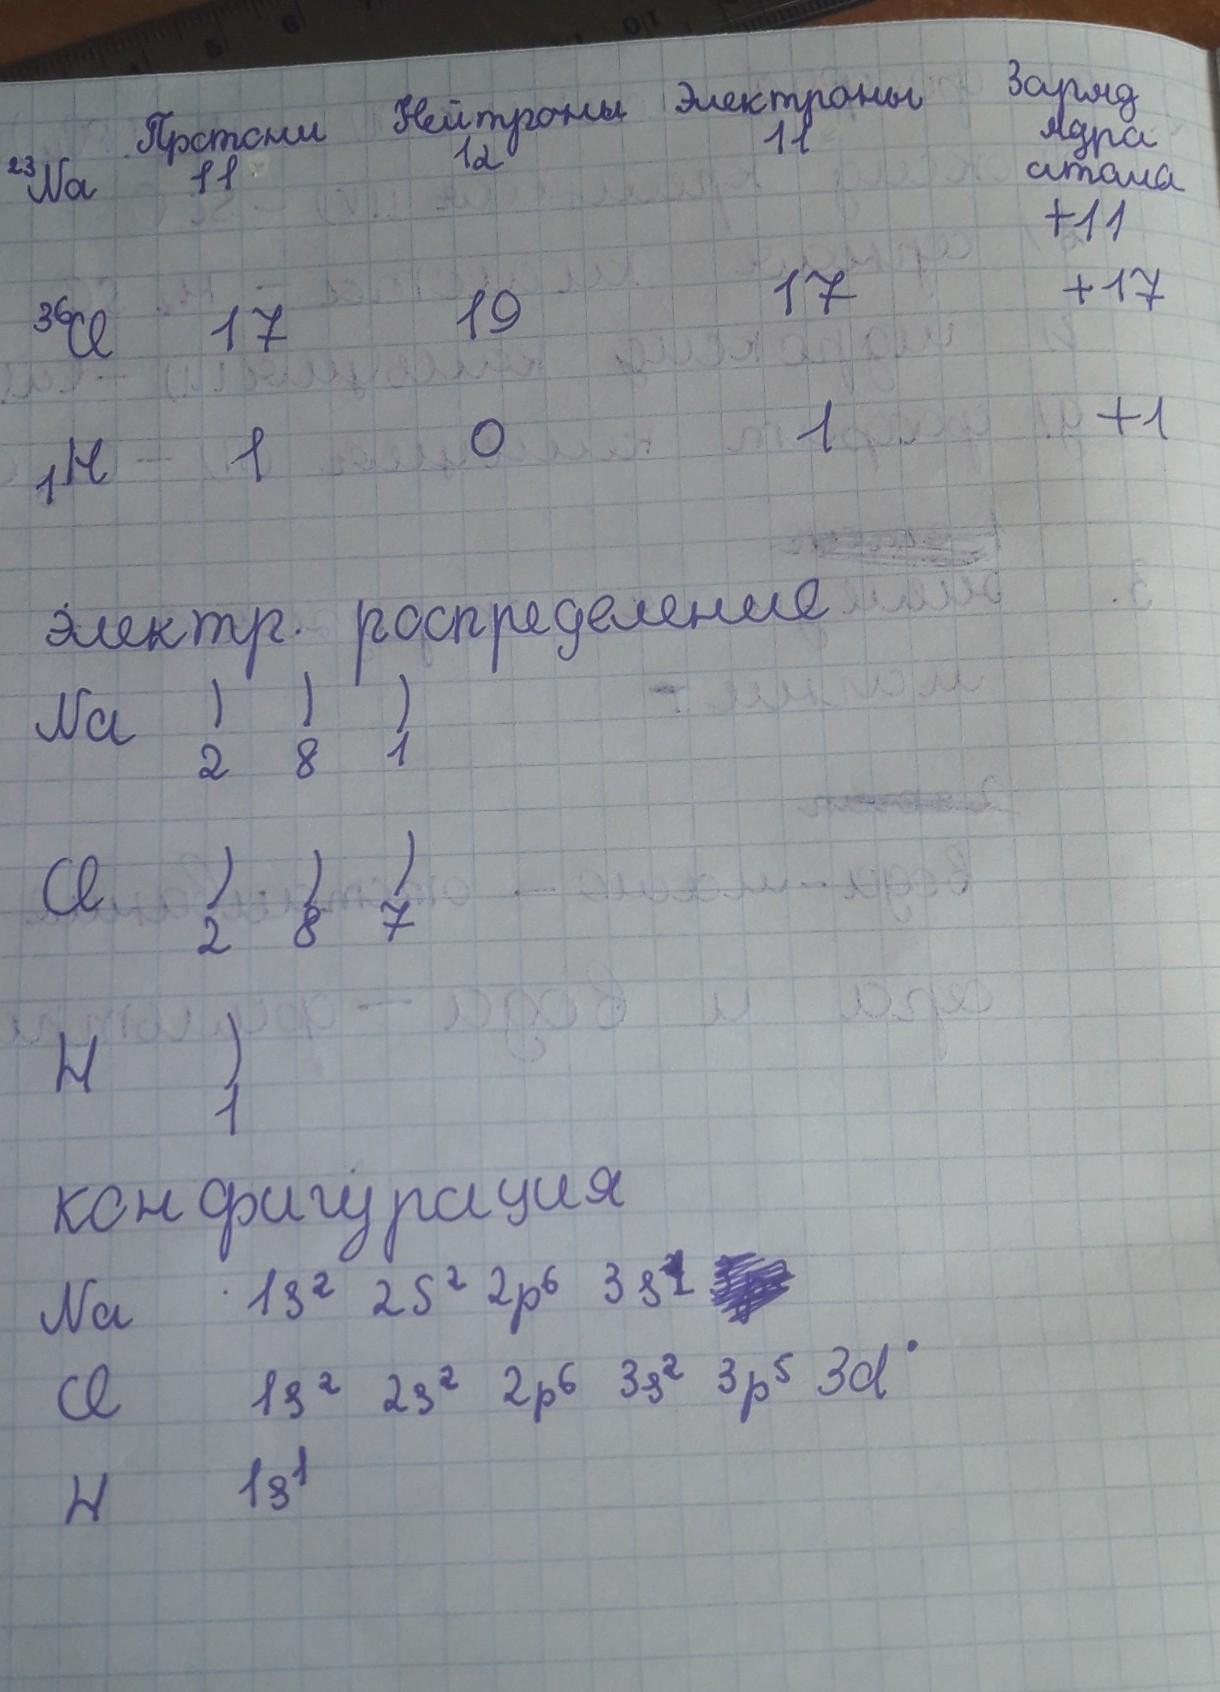 Протоны Нейтроны Электроны Заряд
ядра
атома
²³Na 11 12 11 +11
³⁶Cl 17 19 17 +17
₁H 1 0 1 +1
Электр. распределение
Na ) ) )
2 8 1
Cl ) ) )
2 8 7
H )
1
конфигурация
Na 1s² 2s² 2p⁶ 3s¹
Cl 1s² 2s² 2p⁶ 3s² 3p⁵ 3d°
H 1s¹